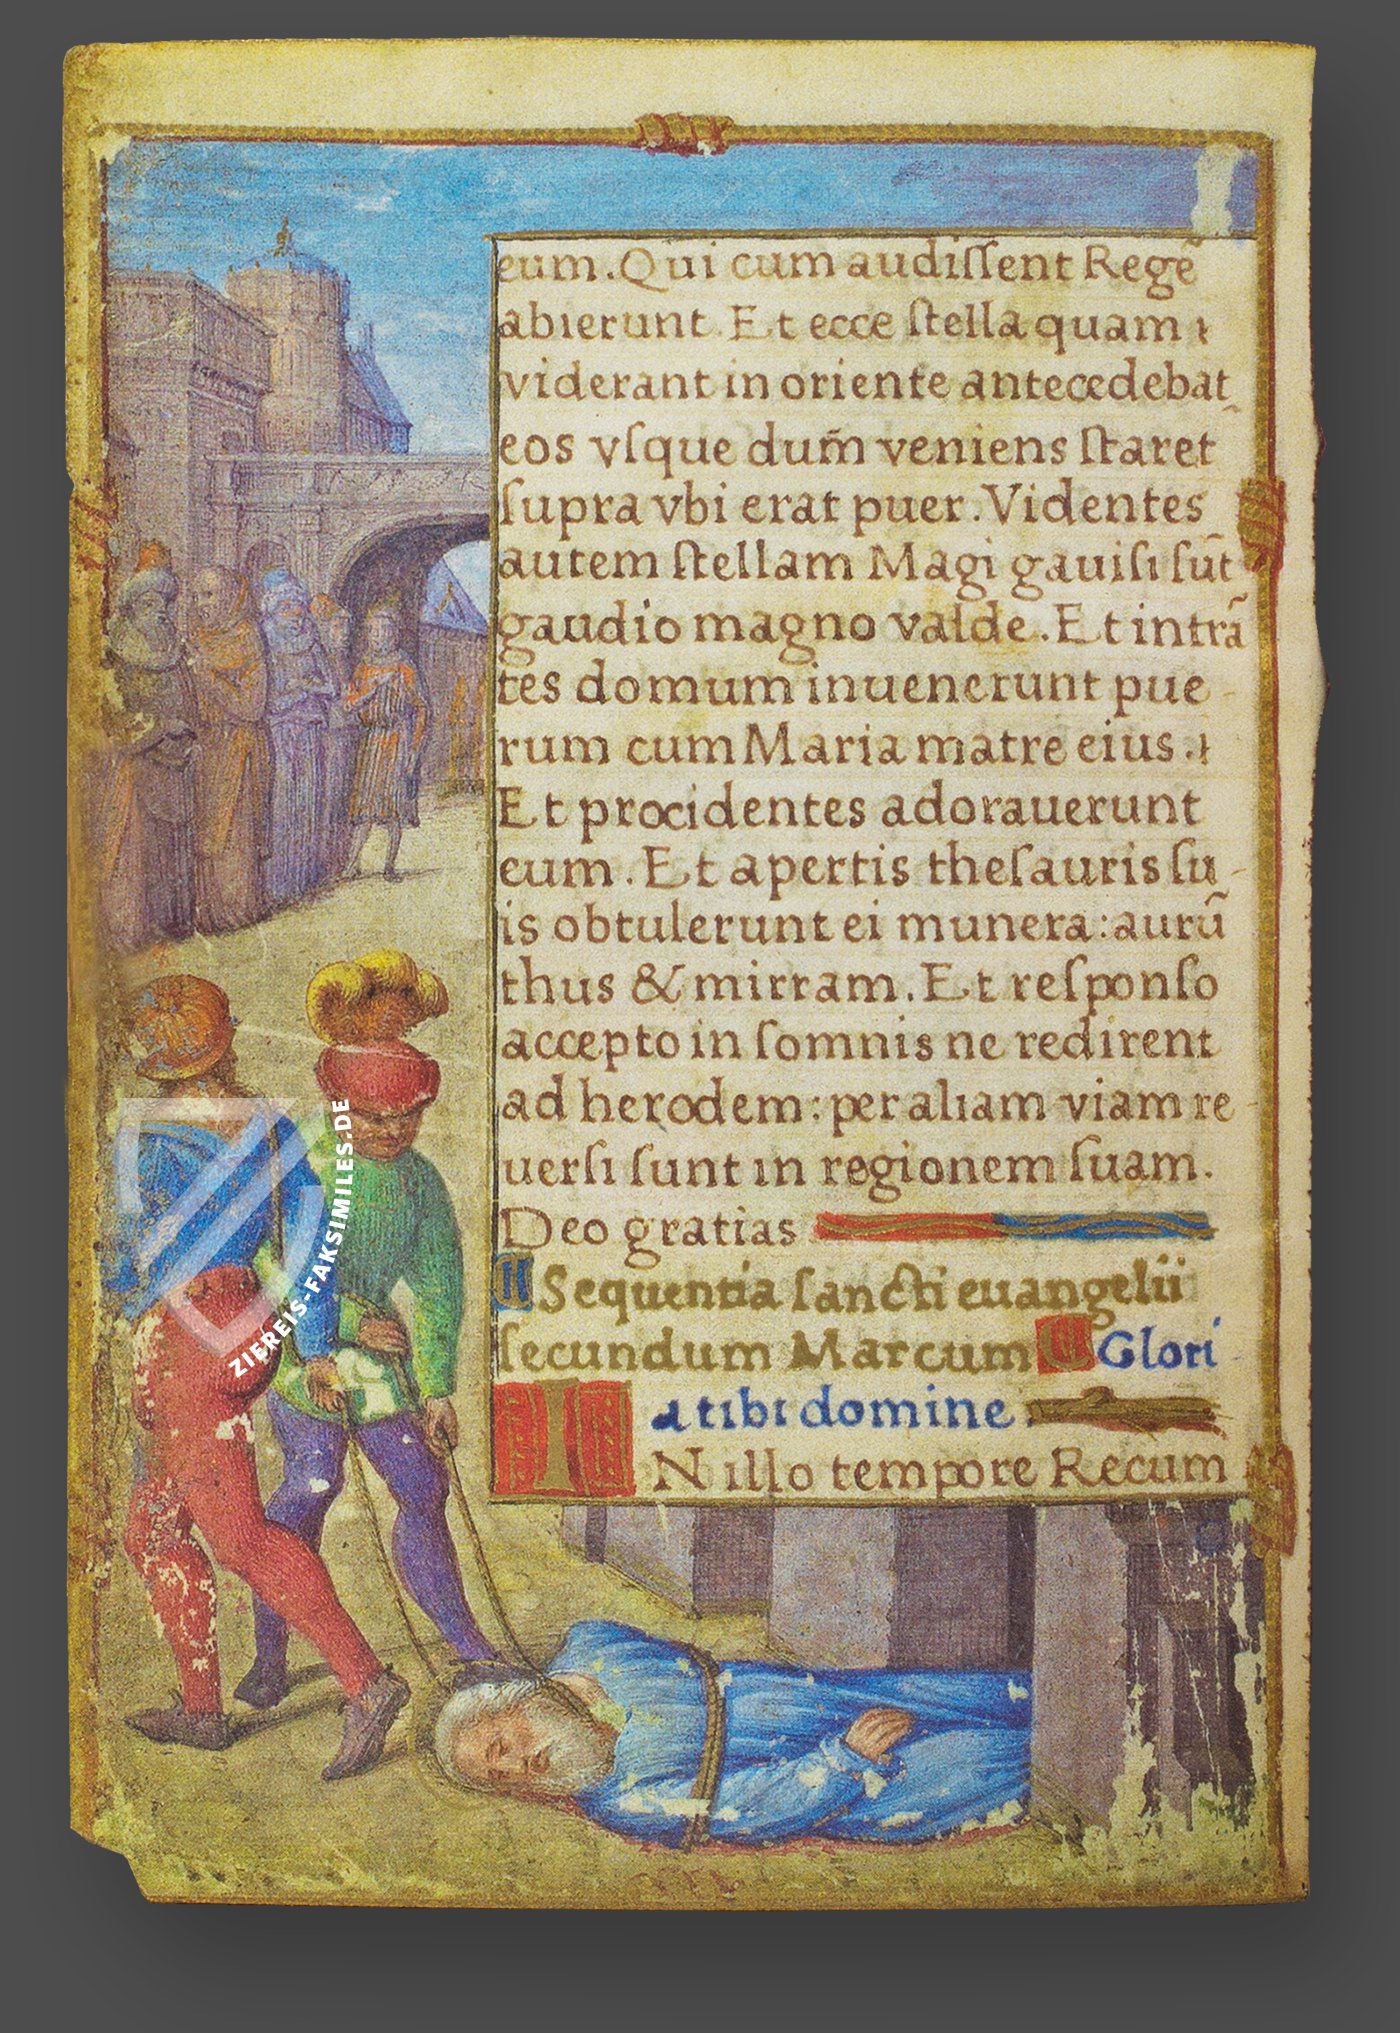 eum. Qui cum audiſſent Regē
abierunt. Et ecce ſtella quam
viderant in oriente antecedebat
eos vſque dum̄ veniens ſtaret
ſupra vbi erat puer. Videntes
autem ſtellam Magi gauiſi ſūt
gaudio magno valde. Et intrā
tes domum inuenerunt pue-
rum cum Maria matre eius.
Et procidentes adorauerunt
eum. Et apertis theſauris ſu-
is obtulerunt ei munera: aurū
thus & mirram. Et reſponſo
accepto in ſomnis ne redirent
ad herodem: per aliam viam re-
uerſi ſunt in regionem ſuam.
Deo gratias
Sequentia ſancti euangelii
ſecundum Marcum Glori-
a tibi domine.
IN illo tempore Recum
ZIEREIS-FAKSIMILES.DE